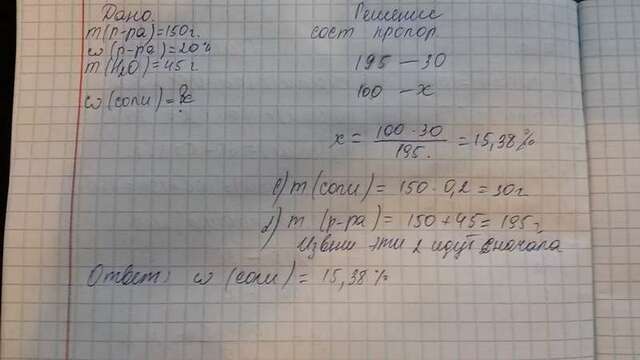 Дано.
m(р-ра)=150г.
ω(р-ра)=20%
m(H₂O)=45г
ω(соли)=?x
Решение
сост пропор.
195 — 30
100 — x
x = 100·30 / 195. = 15,38%
1) m(соли) = 150·0,2 = 30г
2) m (р-ра) = 150+45 = 195г
Извини эти 2 идут сначала
Ответ: ω (соли) = 15,38%